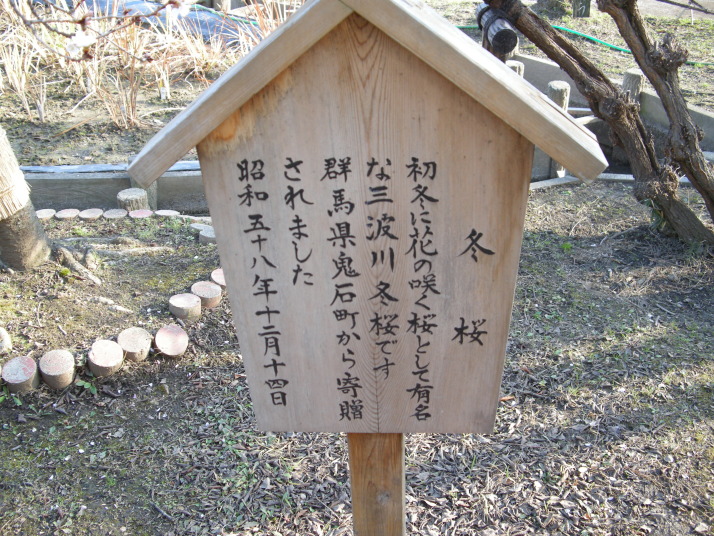 冬桜
初冬に花の咲く桜として有名
な三波川冬桜です
群馬県鬼石町から寄贈
されました
昭和五十八年十二月十四日